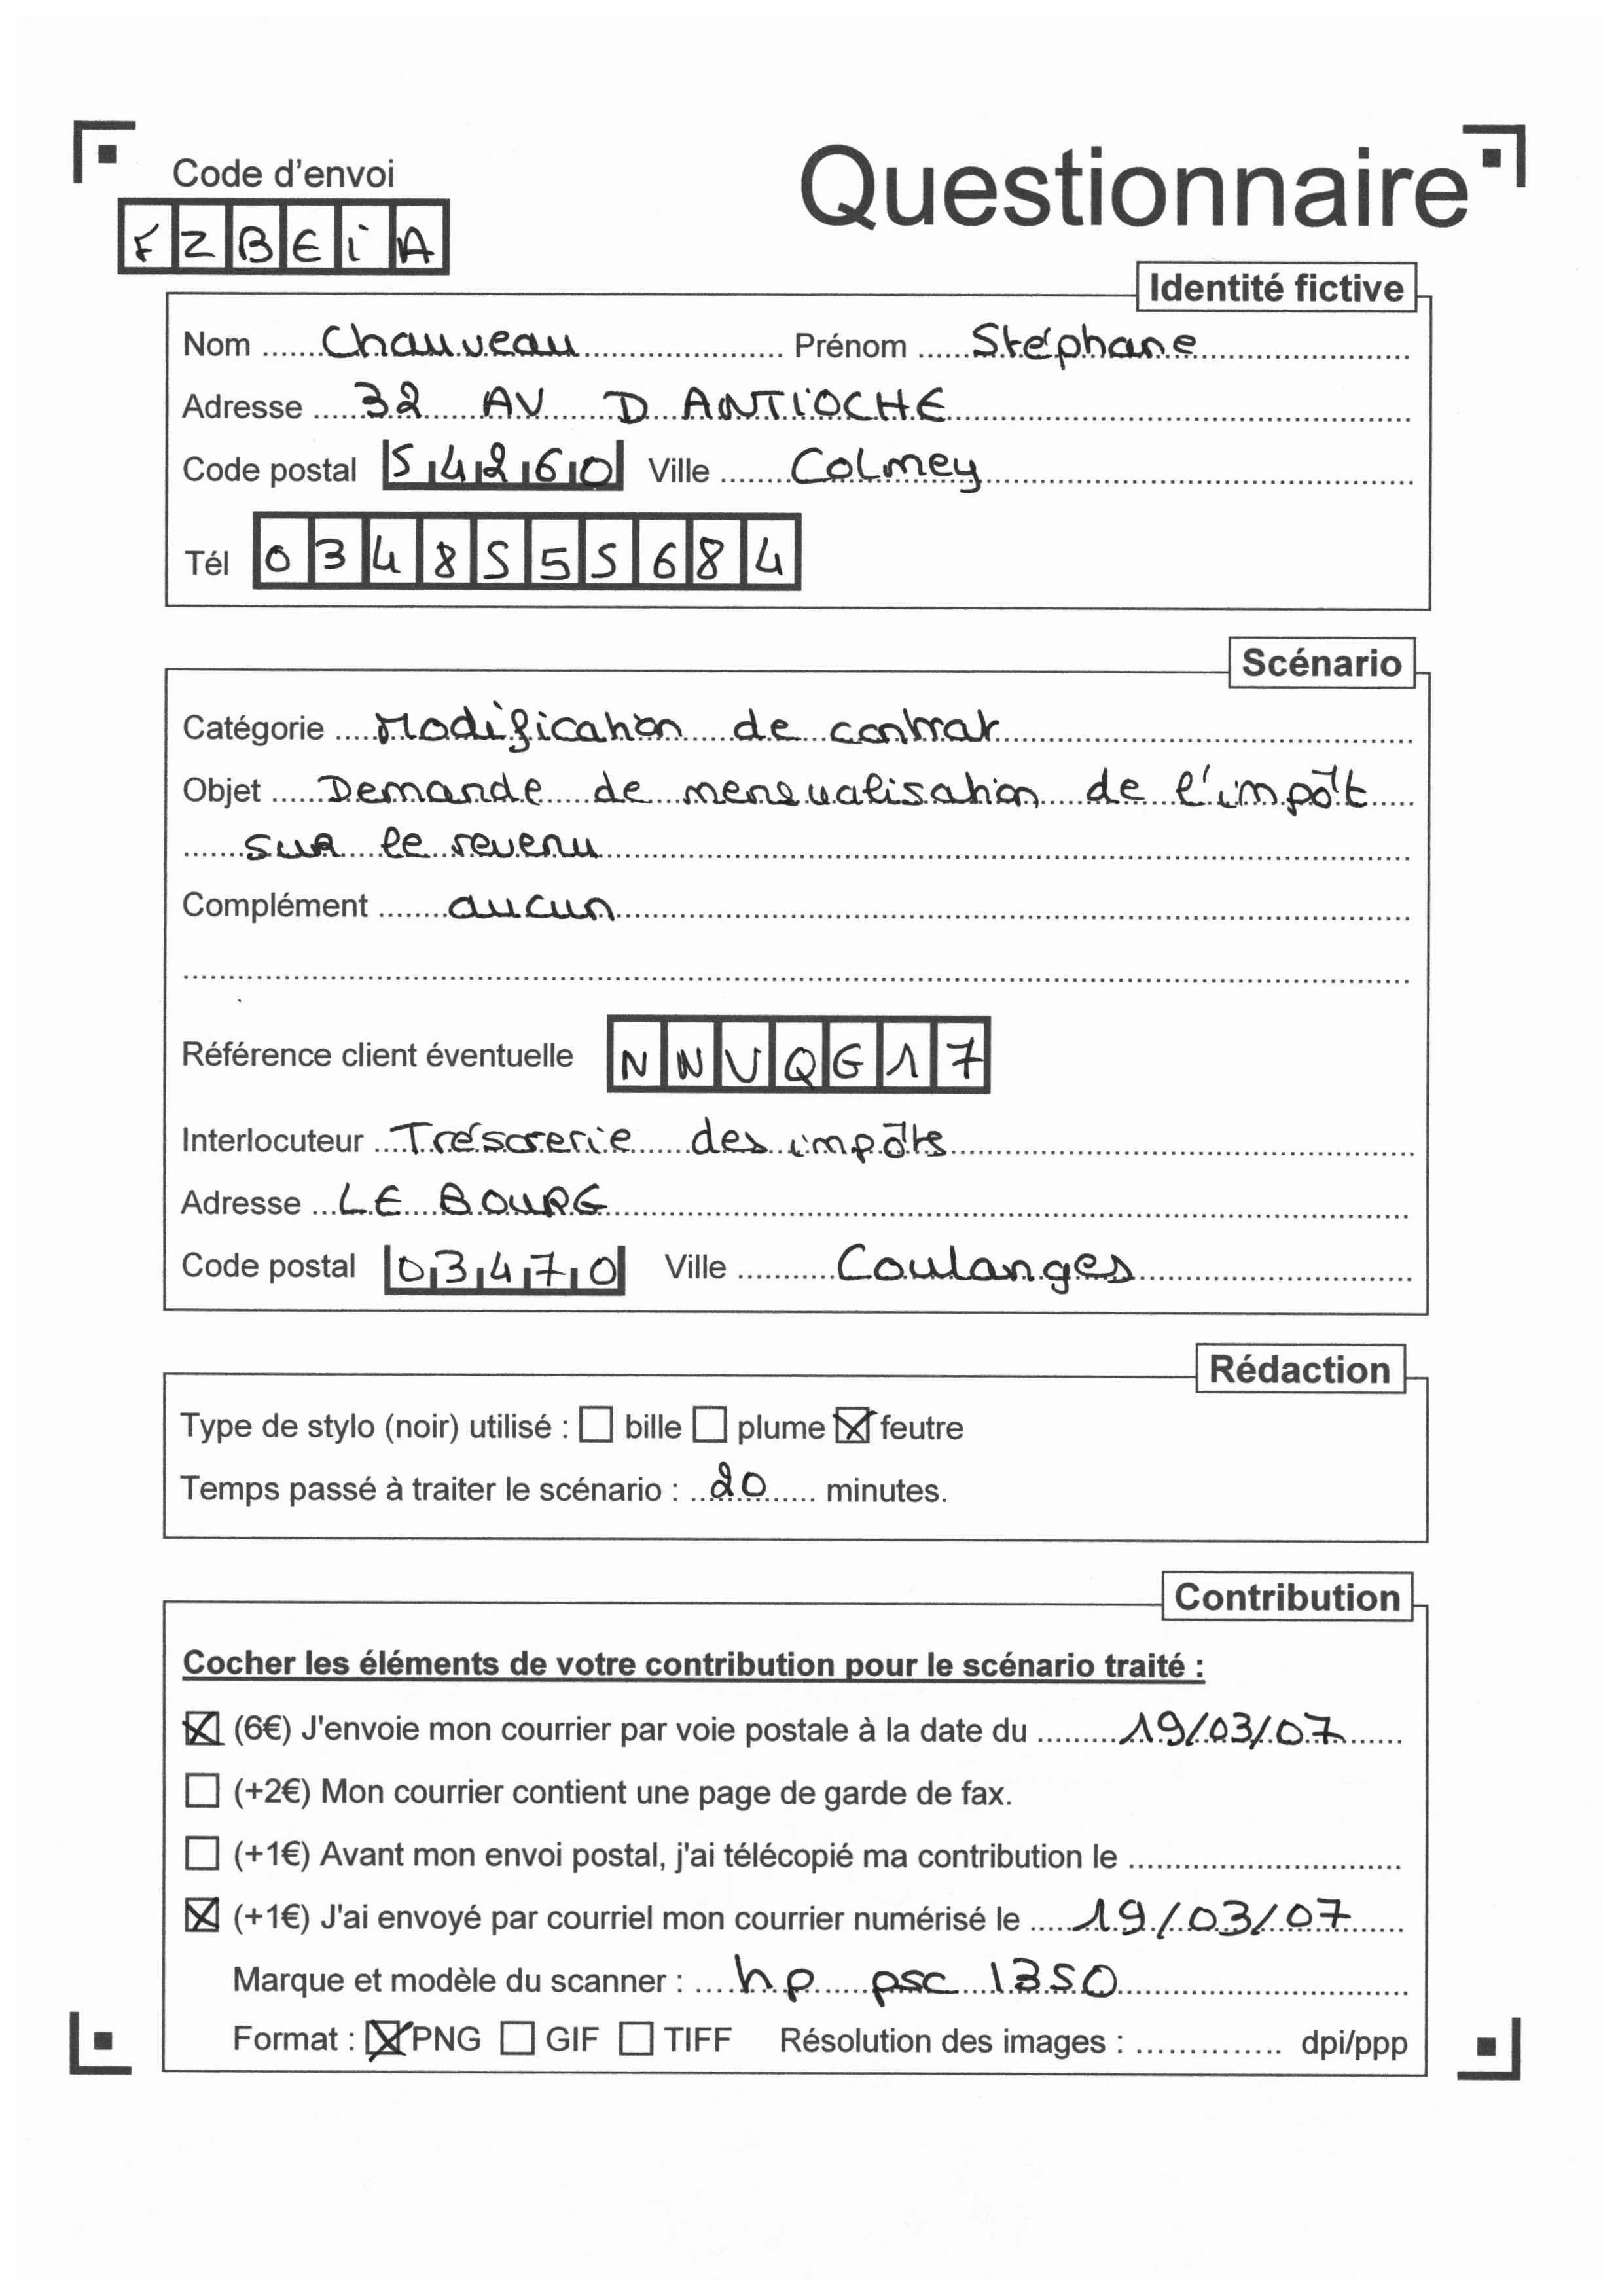 Code d'envoi
Questionnaire
FZBEIA
Identité fictive
Nom Chauveau Prénom Stéphane
Adresse 32 AV D ANTIOCHE
Code postal 54260 Ville Colmey
Tél 0348555684
Scénario
Catégorie Modification de contrat
Objet Demande de mensualisation de l'impôt
sur le revenu
Complément aucun
Référence client éventuelle NNVQG17
Interlocuteur Trésorerie des impôts
Adresse LE BOURG
Code postal 03470 Ville Coulanges
Rédaction
Type de stylo (noir) utilisé : bille plume feutre
Temps passé à traiter le scénario : 20 minutes.
Contribution
Cocher les éléments de votre contribution pour le scénario traité :
(6€) J'envoie mon courrier par voie postale à la date du 19/03/07
(+2€) Mon courrier contient une page de garde de fax.
(+1€) Avant mon envoi postal, j'ai télécopié ma contribution le
(+1€) J'ai envoyé par courriel mon courrier numérisé le 19/03/07
Marque et modèle du scanner : hp psc 1350
Format : PNG GIF TIFF Résolution des images : dpi/ppp